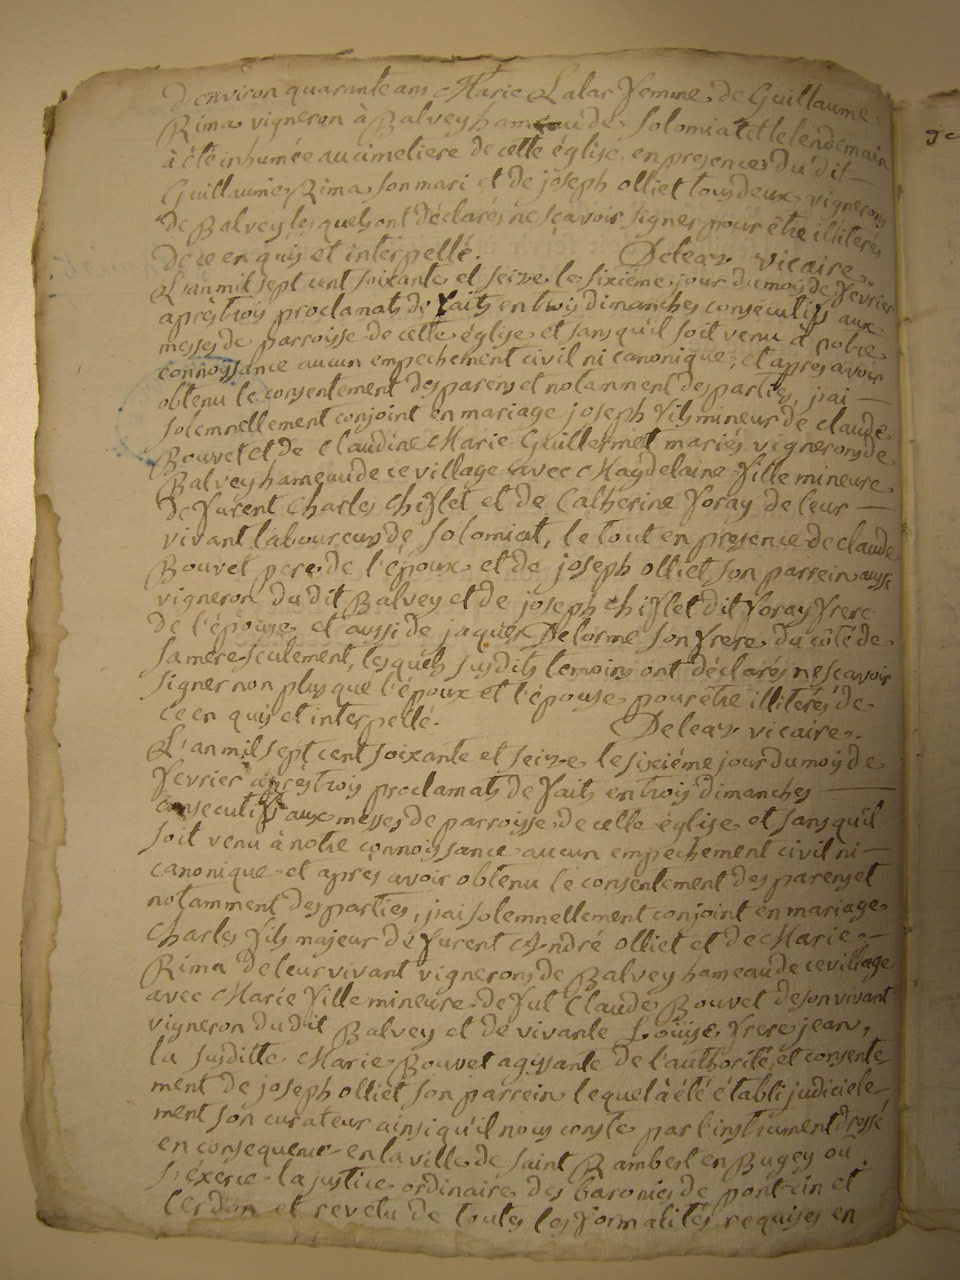 d'environ quarante ans Marie Lalas femme de Guillaume
Rima vigneron à Balvey hameau de Solomiat et le lendemain
à été inhumée au cimetiere de cette église en presence du dit
Guillaume Rima son mari et de joseph olliet tous deux vignerons
de Balvey lesquels ont déclarés ne sçavoir signer pour être illiterés
de ce enquis et interpellé. Deleaz vicaire.
L'an mil sept cent soixante et seize le sixiéme jour du mois de fevrier
aprés trois proclamats de faits en trois dimanches consecutifs aux
messes de parroisse de cette église et sans qu'il soit venu à notre
connoissance aucun empechement civil ni canonique, et apres avoir
obtenu le consentement des parens et notamment des parties, j'ai
solemnellement conjoint en mariage joseph fils mineur de claude
Bouvet et de Claudine Marie Guillermet mariés vignerons de
Balvey hameau de ce village avec Magdelaine fille mineure
de furent Charles Chiflet et de Catherine foray de leur
vivant laboureurs de Solomiat, le tout en presence de claude
Bouvet pere de l'époux et de joseph olliet son parrein aussi
vigneron du dit Balvey et de joseph Chiflet dit foray frere
de l'épouse et aussi de jaques Delorme son frere du côté de
sa mere seulement, lesquels susdits temoins ont déclarés ne scavoir
signer non plus que l'époux et l'épouse pour être illiterés de
ce en quis et interpellé. Deleaz vicaire.
L'an mil sept cent soixante et seize le sixiéme jour du mois de
fevrier apres trois proclamats de faits en trois dimanches
consecutifs aux messes de parroisse de cette église et sans qu'il
soit venu à notre connoissance aucun empechement civil ni
canonique et apres avoir obtenu le consentement des parens et
notamment des parties, j'ai solemnellement conjoint en mariage
Charles fils majeur de furent André olliet et de Marie
Rima de leur vivant vignerons de Balvey hameau de ce village
avec Marie fille mineure de fut Claude Bouvet de son vivant
vigneron du dit Balvey et de vivante Loüise frere jean,
la susditte Marie Bouvet agissante de l'authorité et consente
ment de joseph olliet son parrein lequel à été établi judiciele
ment son curateur ainsi qu'il nous conste par l'instrument dressé
en consequence en la ville de Saint Rambert en Bugey où
s'éxerce la justice ordinaire des baronies de pont cin et
Cerdon et revetu de toutes les formalités requises en